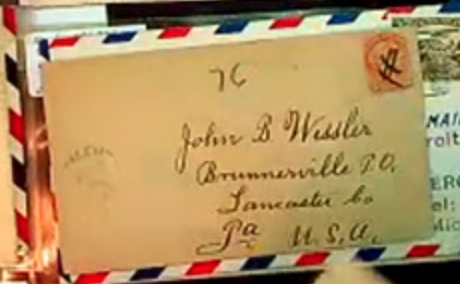 76
John B. Wissler
Brunnerville P.O.
Lancaster Co
Pa U.S.A.